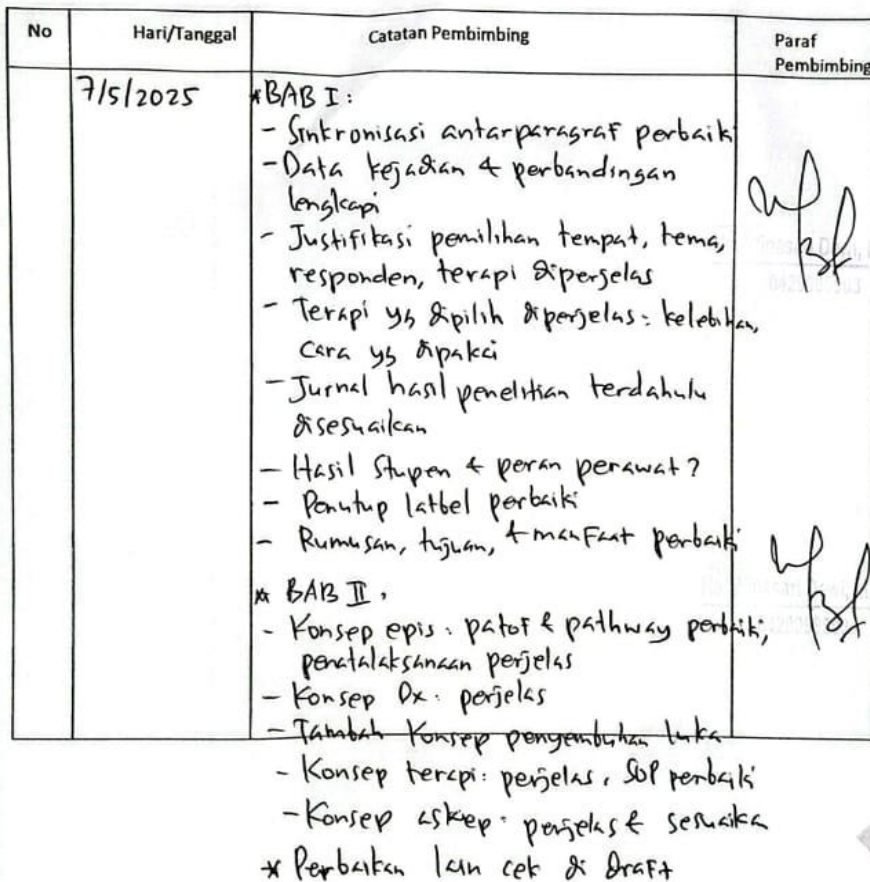 No Hari/Tanggal Catatan Pembimbing Paraf
Pembimbing
7/5/2025 *BAB I:
- Sinkronisasi antarparagraf perbaiki
- Data kejadian & perbandingan
lengkapi
- Justifikasi pemilihan tempat, tema,
responden, terapi diperjelas
- Terapi yg dipilih diperjelas: kelebihan,
cara yg dipakai
- Jurnal hasil penelitian terdahulu
disesuaikan
- Hasil Stupen & peran perawat?
- Penutup latbel perbaiki
- Rumusan, tujuan, & manfaat perbaiki
* BAB II.
- Konsep epis: patof & pathway perbaiki,
penatalaksanaan perjelas
- Konsep Dx: perjelas
- Tambah Konsep penyembuhan luka
- Konsep terapi: perjelas, SOP perbaiki
- Konsep askep: perjelas & sesuaika
* Perbaikan lain cek di draft